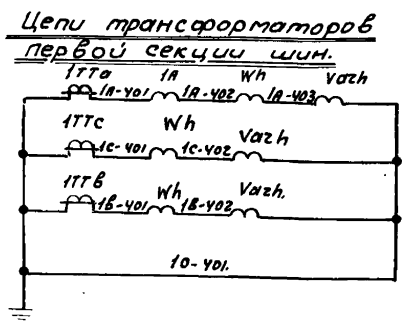 Цепи трансформаторов
первой секции шин.
1ТТа 1А Wh Varh
1А-401 1А-402 1А-403
1ТТс Wh Varh
1С-401 1С-402
1ТТв Wh Varh.
1В-401 1В-402
10-401.